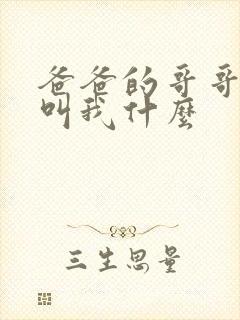 爸爸的哥哥
叫我什麼
三生思量